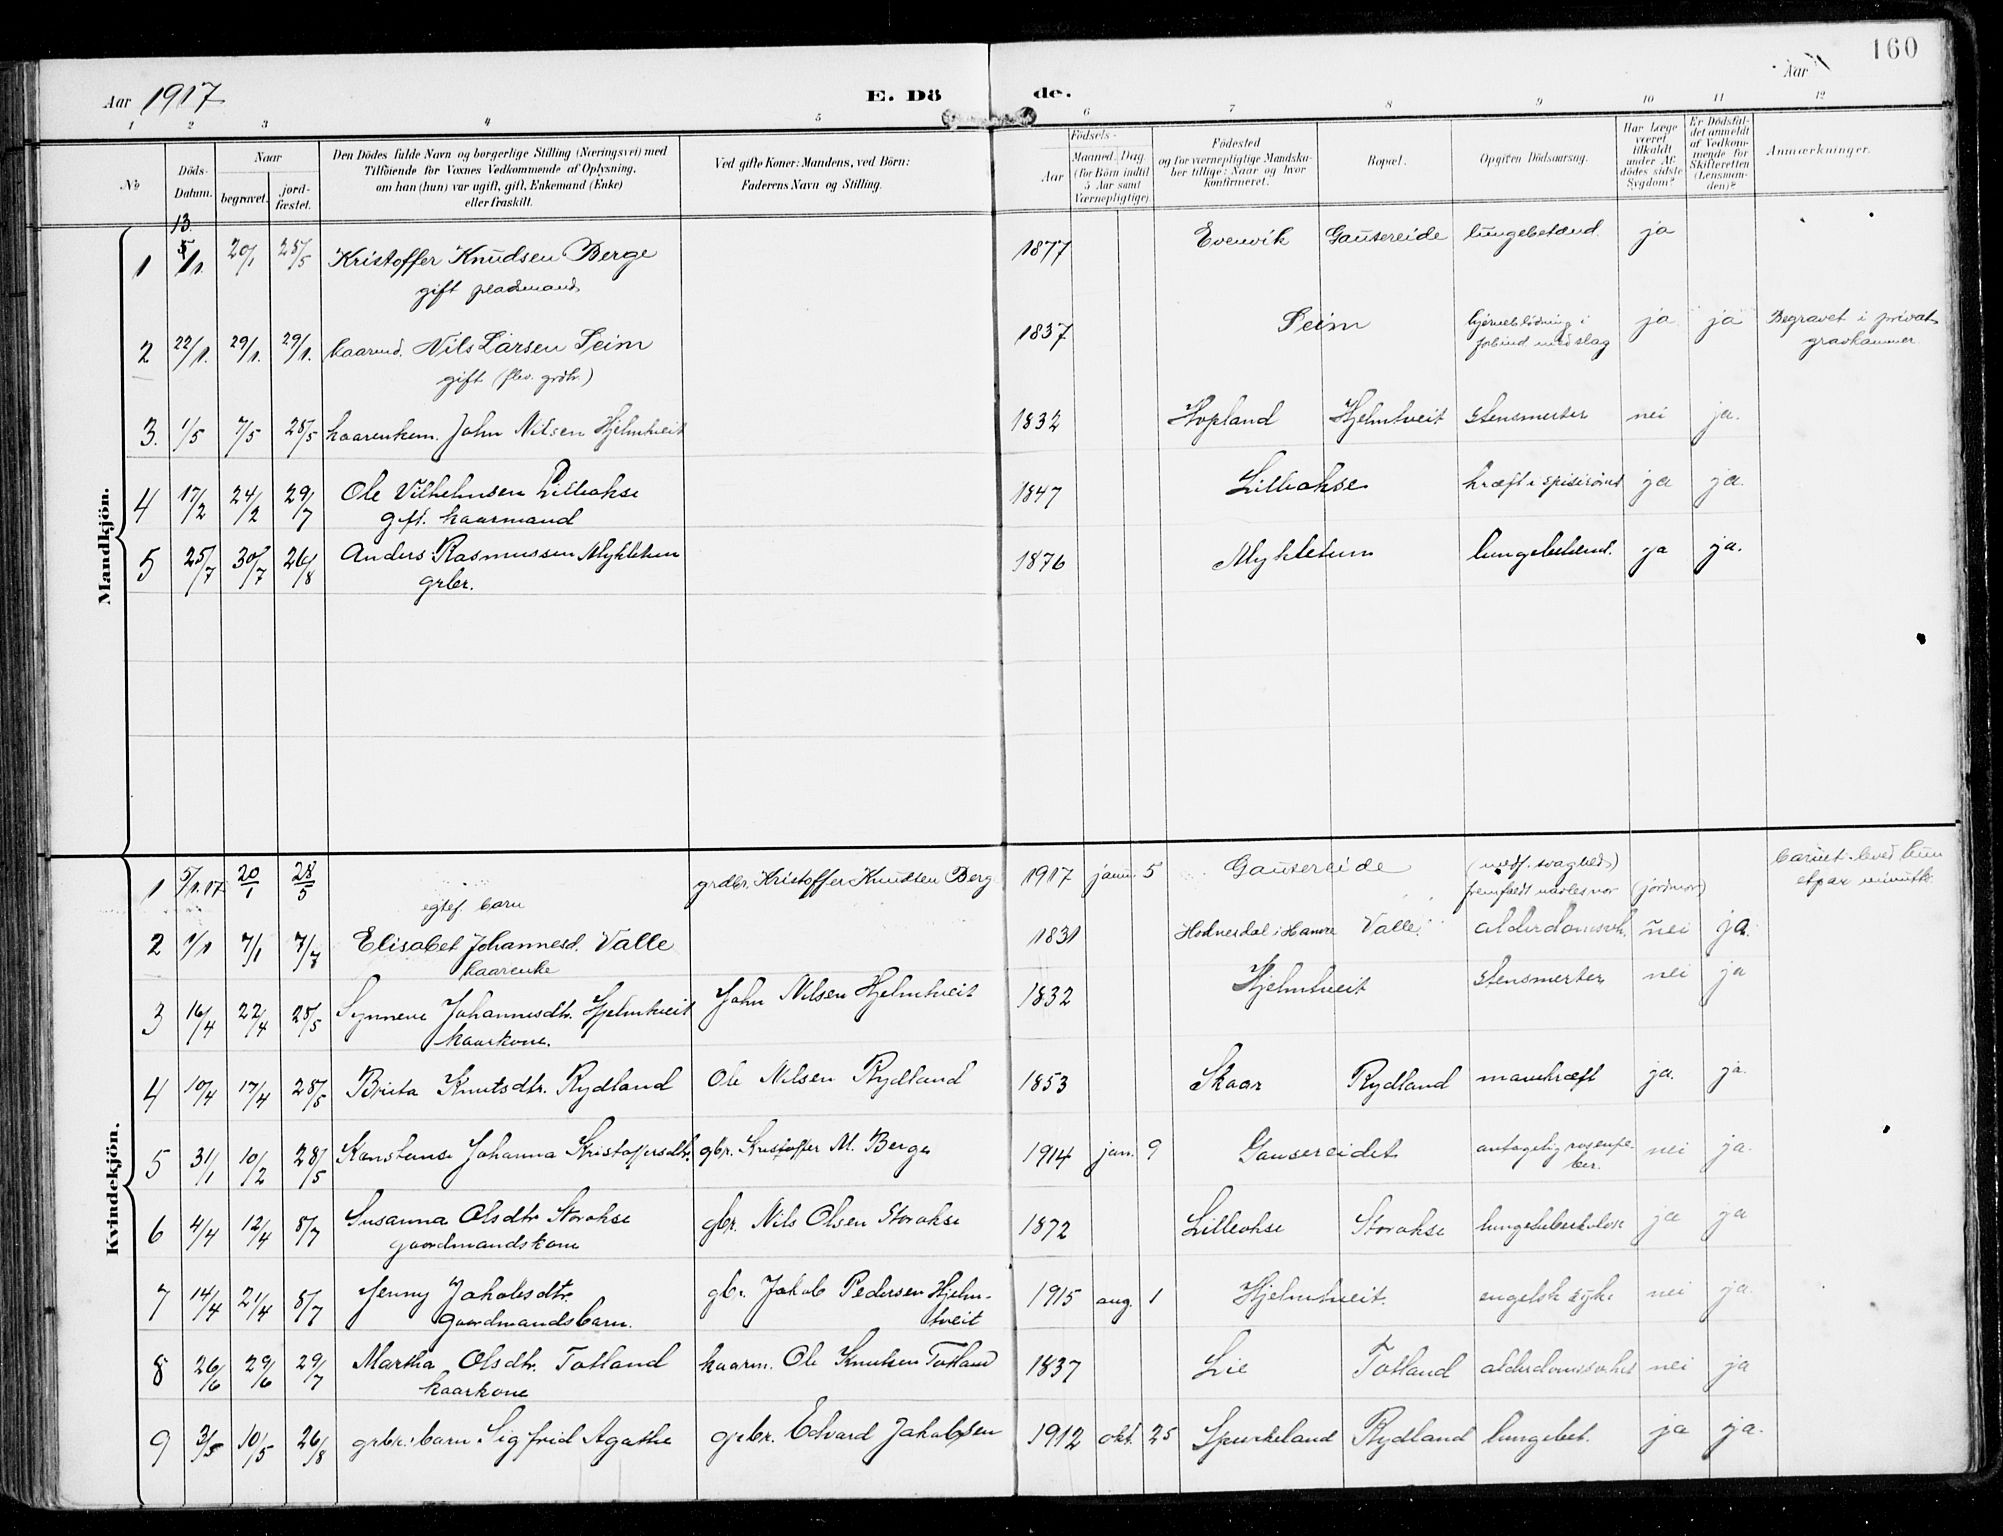 160
Aar 1917
E. Dö de.
Aar
1 2 3 4 5 6 7 8 9 10 11 12
№
Döds-Datum.
Naar
begravet.
jord-fæstet.
Den Dödes fulde Navn og borgerlige Stilling (Næringsvei) med
Tilföiende for Voxnes Vedkommende af Oplysning,
om han (hun) var ugift, gift, Enkemand (Enke)
eller fraskilt.
Ved gifte Koner: Mandens, ved Börn:
Faderens Navn og Stilling.
Födsels-
Aar
Maaned. Dag.
(for Börn indtil
5 Aar samt
Værnepligtige)
Födested
og for værnepligtige Mandska-
ber tillige: Naar og hvor
konfirmeret.
Bopæl.
Opgiven Dödsaarsag.
Har Læge
været
tilkaldt
under Af-
dödes sidste
Sygdom?
Er Dödsfal-
det anmeldt
af Vedkom-
mende for
Skifteretten
(Lensman-
den)?
Anmærkninger.
Mandkjön.
13.
1 5/1. 20/1 28/5 Kristoffer Knudsen Berge 1877 Evenvik Gautsereide lungebetænd. ja
gift pladsmand
2 22/1. 29/1. 29/1. kaarmd. Nils Larsen Seim 1837 Seim hjerneblödning i ja ja Begravet i privat
gift (flev. grdbr.) forbind med slag gravkammer.
3. 1/5 7/5 28/5 kaarenkem. John Nilsen Hjelmtveit 1832 Hopland Hjelmtveit stensmerter nei ja.
4 17/2 24/2 29/7 Ole Vilhelmsen Lilleokse 1847 Lilleokse kræft i spiserøret ja ja.
gift. kaarmand
5 25/7 30/7 26/8 Anders Rasmussen Mykletun 1876 Mykletun lungebetænd. ja ja.
grbr.
Kvindekjön.
1 5/1.17 20/1 28/5 grdbr. Kristoffer Knudsen Berg 1917 janu. 5 Gautsereide (medf. svaghed) barnet leved kun
egtef. barn fremfaldt navlesnor (jordmor) et par minutter
2 1/1 7/1 7/7 Elisabet Johannesd. Valle 1831 Hodnesdal i Hamre Valle. alderdomssvk. nei ja.
kaarenke
3 16/4 22/4 28/5 Synneve Johannesdtr. Hjelmtveit John Nilsen Hjelmtveit 1832 Hjelmtveit stensmerter nei ja
kaarkone.
4 10/4 17/4 28/5 Brita Knutsdtr. Rydland Ole Nilsen Rydland 1853 Skaar Rydland mavekræft ja. ja.
5 31/1 10/2 28/5 Konstanse Johanna Kristoffersdtr. gbr. Kristoffer M. Berge 1914 jan. 9 Gausereidet antagelig rosenfe- nei ja.
ber.
6 4/4 12/4 8/7 Susanna Olsdtr Storokse gbr. Nils Olsen Storokse 1872 Lilleokse Storokse lungetuberkulose ja ja
gaardmandskone
7 14/4 21/4 8/7 Jenny Jakobsdtr. gbr. Jakob Pedersen Hjelm- 1915 aug. 1 Hjelmtveit. engelsk syke nei ja.
gaardmandsbarn. tveit
8 26/6 29/6 29/7 Martha Olsdtr. Totland kaarm. Ole Knutsen Totland 1837 Lie Totland alderdomssvakhet nei ja
kaarkone
9 3/5 10/5 26/8 grbr.: barn Sigfrid Agathe grbr. Edvard Jakobsen 1912 okt. 25 Spurkeland Rydland lungebet. ja ja.